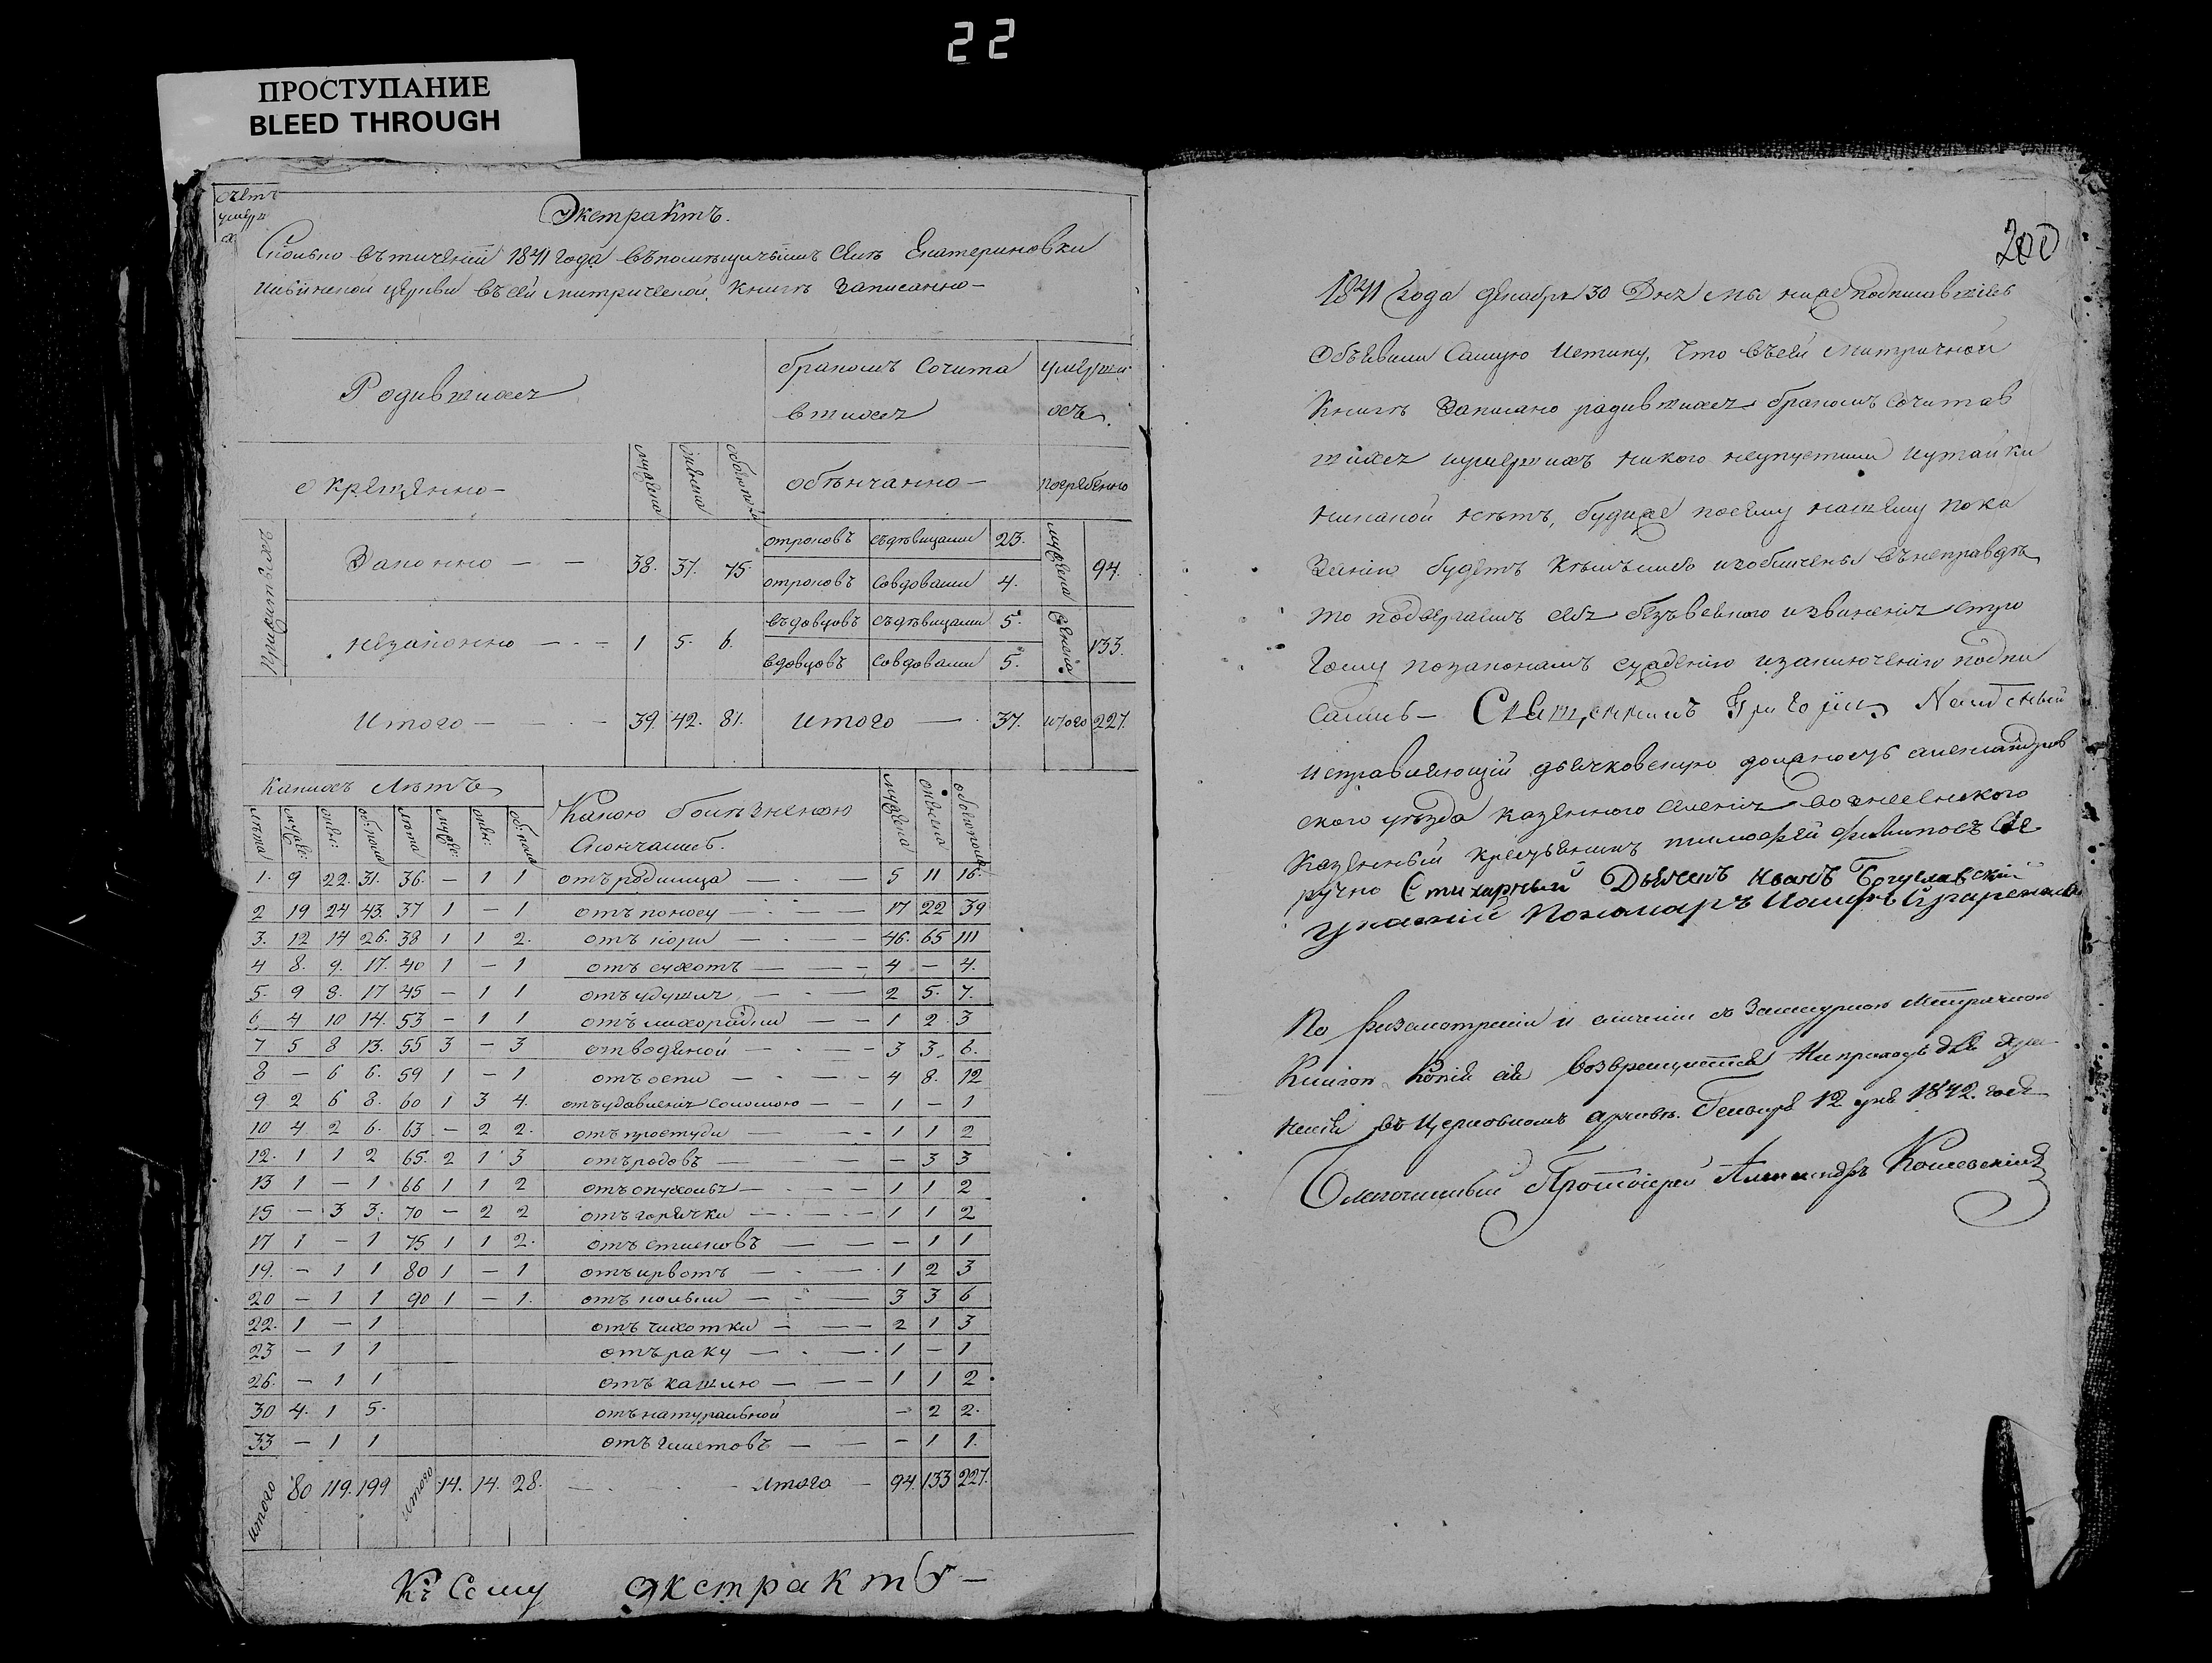 22
ПРОСТУПАНИЕ
BLEED THROUGH
Экстрактъ.
Сколько въ течении 1841 года въ помещичьемъ селе Екатериновки
церкви въ сей митрической книге записанно —
Родившихся
бракомъ сочита
вшихся
умерши
хъ.
окрещенно —
мужеска
женска
обоего пола
обвенчанно —
погребенно
Прижитыхъ
Законно — — 38. 37. 75.
незаконно — — 1 5. 6.
отроковъ съ девицами 23.
отроковъ со вдовами 4.
въдовцовъ съ девицами 5.
вдовцовъ со вдовами 5.
мужеска 94.
женска 133.
Итого — — 39. 42. 81. Итого — 37. итого 227.
Какихъ летъ
Какою болезнею
скончались.
мужеска женска обоего пола
лета муже: жен: об: пола лета муже: жен: об: пола
1. 9 22. 31. 36. — 1 1 отъ родимца — 5 11 16.
2 19 24 43. 37 1 — 1 отъ поносу — 17 22 39
3. 12 14 26. 38 1 1 2. отъ кори — 46. 65 111
4 8. 9. 17. 40 1 — 1 отъ сухотъ — 4 — 4.
5. 9 8. 17 45 — 1 1 отъ удушия — 2 5. 7.
6 4 10 14. 53 — 1 1 отъ лихорадки — 1 2 3
7 5 8 13. 55 3 — 3 отводяной — 3 3. 6.
8 — 6 6. 59 1 — 1 отъ оспи — 4 8. 12
9 2 6 8. 60 1 3 4. отъ удавления соломою — 1 — 1
10 4 2 6. 63 — 2 2. отъ простуди — 1 1 2
12. 1 1 2 65. 2 1 3 отъ родовъ — — 3 3
13 1 — 1 66 1 1 2 отъ опухоли — 1 1 2
15 — 3 3. 70 — 2 2 отъ горячки — 1 1 2
17 1 — 1 75 1 1 2. отъ — — 1 1
19. — 1 1 80 1 — 1 отъ — 1 2 3
20 — 1 1 90 1 — 1. отъ кольки — 3 3 6
22. 1 — 1 отъ чихотки — 2 1 3
23 — 1 1 отъ раку — 1 — 1
26. — 1 1 отъ кашлю — 1 1 2
30 4. 1 5. отъ натуральной — 2 2.
33 — 1 1 отъ глистовъ — — 1 1.
итого 80 119. 199 итого 14. 14. 28. — итого — 94. 133 227.
Къ Сему экстракту —
200
1841 года декабря 30 дня мы ниже подписавшиеся
объявили самую истину, что въ сей митричной
книге записано радившихся бракомъ сочитав
шихся и умершихъ никого неупустили и утайки
никакой нетъ, буди же посему нашему пока
занию будетъ кемълибо изобличены въ неправде
то подвергаемъ себя безъ всякого извинения стро
гому по законамъ суждению и заключению подпи
сались — Священникъ Григорий
исправляющий дьячковскую должность александров
ского уезда казенного селения вознесенского
казенный крестьянинъ тимофей
ручно Стихарный Дьячекъ Иванъ Богуславский
Указний Пономаръ
По разсмотрении и сличении съ Зашнурною Метричною
Книгою Копия сия возвращается На приходъ для хра
нения въ Церковномъ архиве. Генваря 12 дня 1842. года
Благочинный Протоиерей Александръ